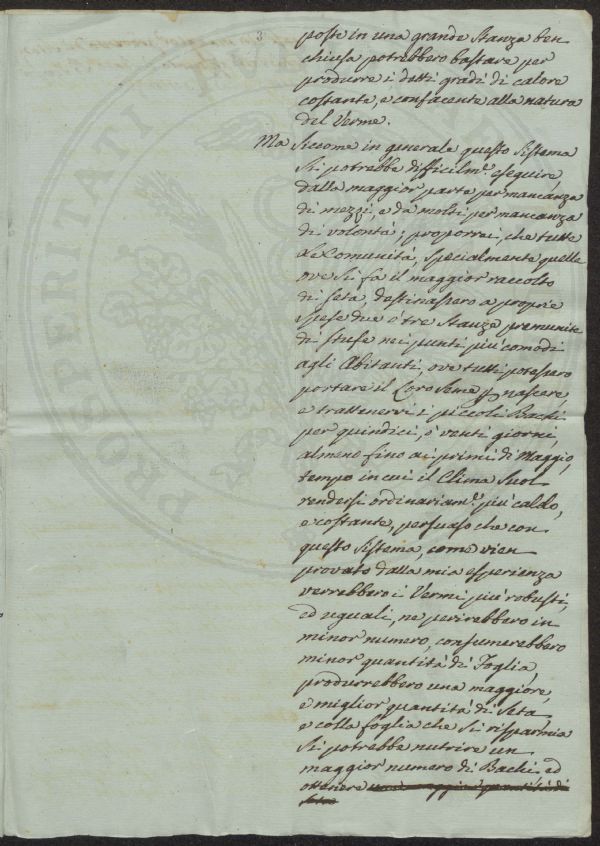 3
poste in una grande Stanza ben
chiusa potrebbero bastare per
produrre i detti gradi di calore
costante, e confacente alla natura
del Verme.
Ma Siccome in generale questo Sistema
Si potrebbe difficilm.e eseguire
dalla maggior parte per mancanza
di mezzi, e da molti per mancanza
di volontà; proporrei, che tutte
Le Comunità, specialmente quelle
ove Si fà il maggior raccolto
di Seta, destinassero a proprie
Spese due o tre Stanze premunite
di Stufe nei punti più comodi
agli Abitanti, ove tutti potessero
portare il Loro Seme p nascere
e trattenervi i piccoli Bachi
per quindici, o venti giorni,
almeno fino ai primi di Maggio,
tempo in cui il Clima Suol
rendersi ordinariam.e più caldo,
e costante, persuaso che con
questo Sistema, come vien
provato dalla mia esperienza
verrebbero i Vermi più robusti,
ed uguali, ne perirebbero in
minor numero, consumerebbero
minor quantità di Foglia,
produrrebbero una maggiore,
e miglior quantità di Seta,
e colla foglia che Si risparmia
Si potrebbe nutrire un
maggior numero di Bachi ed
ottenere una maggior quantità di
Seta
PROSPERITATI